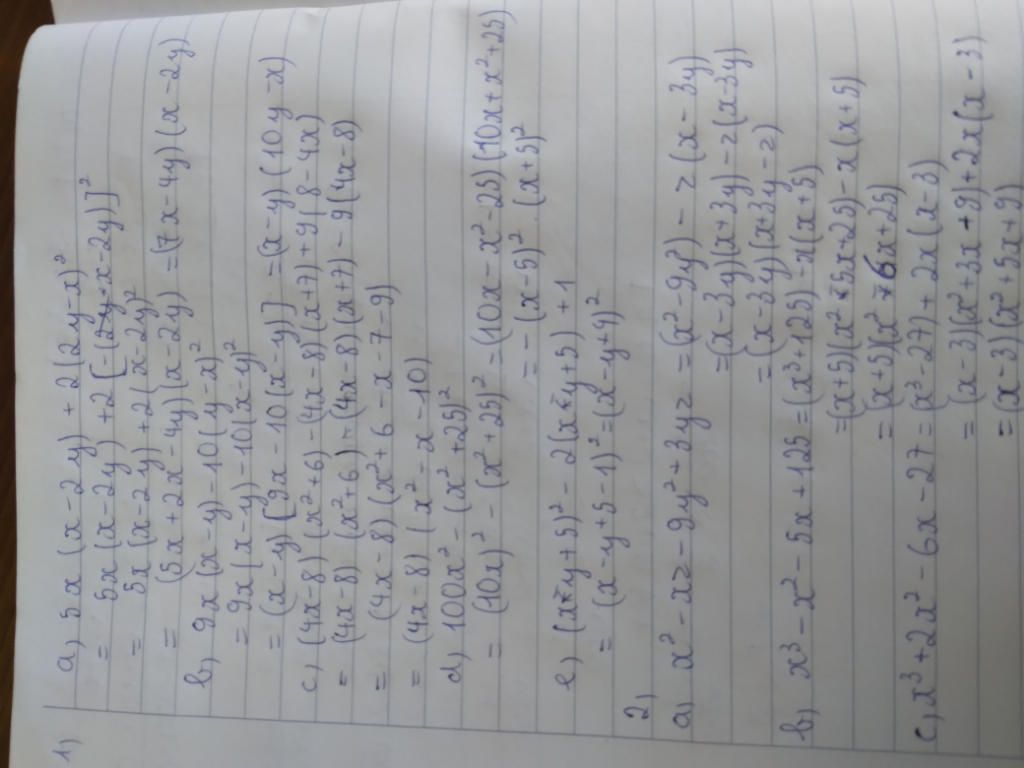 1)
a) 5x(x-2y) + 2(2y-x)²
= 5x(x-2y) + 2[-(2y-x-2y)]²
= 5x(x-2y) + 2(x-2y)²
= (5x+2x-4y)(x-2y) = (7x-4y)(x-2y)
b) 9x(x-y)-10(y-x)²
= 9x(x-y)-10(x-y)²
= (x-y)[9x-10(x-y)] = (x-y)(10y-x)
c) (4x-8)(x²+6)-(4x-8)(x+7)+9(8-4x)
= (4x-8)(x²+6)-(4x-8)(x+7)-9(4x-8)
= (4x-8)(x²+6-x-7-9)
= (4x-8)(x²-x-10)
d) 100x²-(x²+25)²
= (10x)²-(x²+25)² = (10x-x²-25)(10x+x²+25)
= -(x-5)².(x+5)²
e) (x-y+5)²-2(x-y+5)+1
= (x-y+5-1)² = (x-y+4)²
2)
a) x²-xz-9y²+3yz = (x²-9y²)-z(x-3y)
= (x-3y)(x+3y)-z(x-3y)
= (x-3y)(x+3y-z)
b) x³-x²-5x+125 = (x³+125)-x(x+5)
= (x+5)(x²-5x+25)-x(x+5)
= (x+5)(x²-6x+25)
c) x³+2x²-6x-27 = (x³-27)+2x(x-3)
= (x-3)(x²+3x+9)+2x(x-3)
= (x-3)(x²+5x+9)